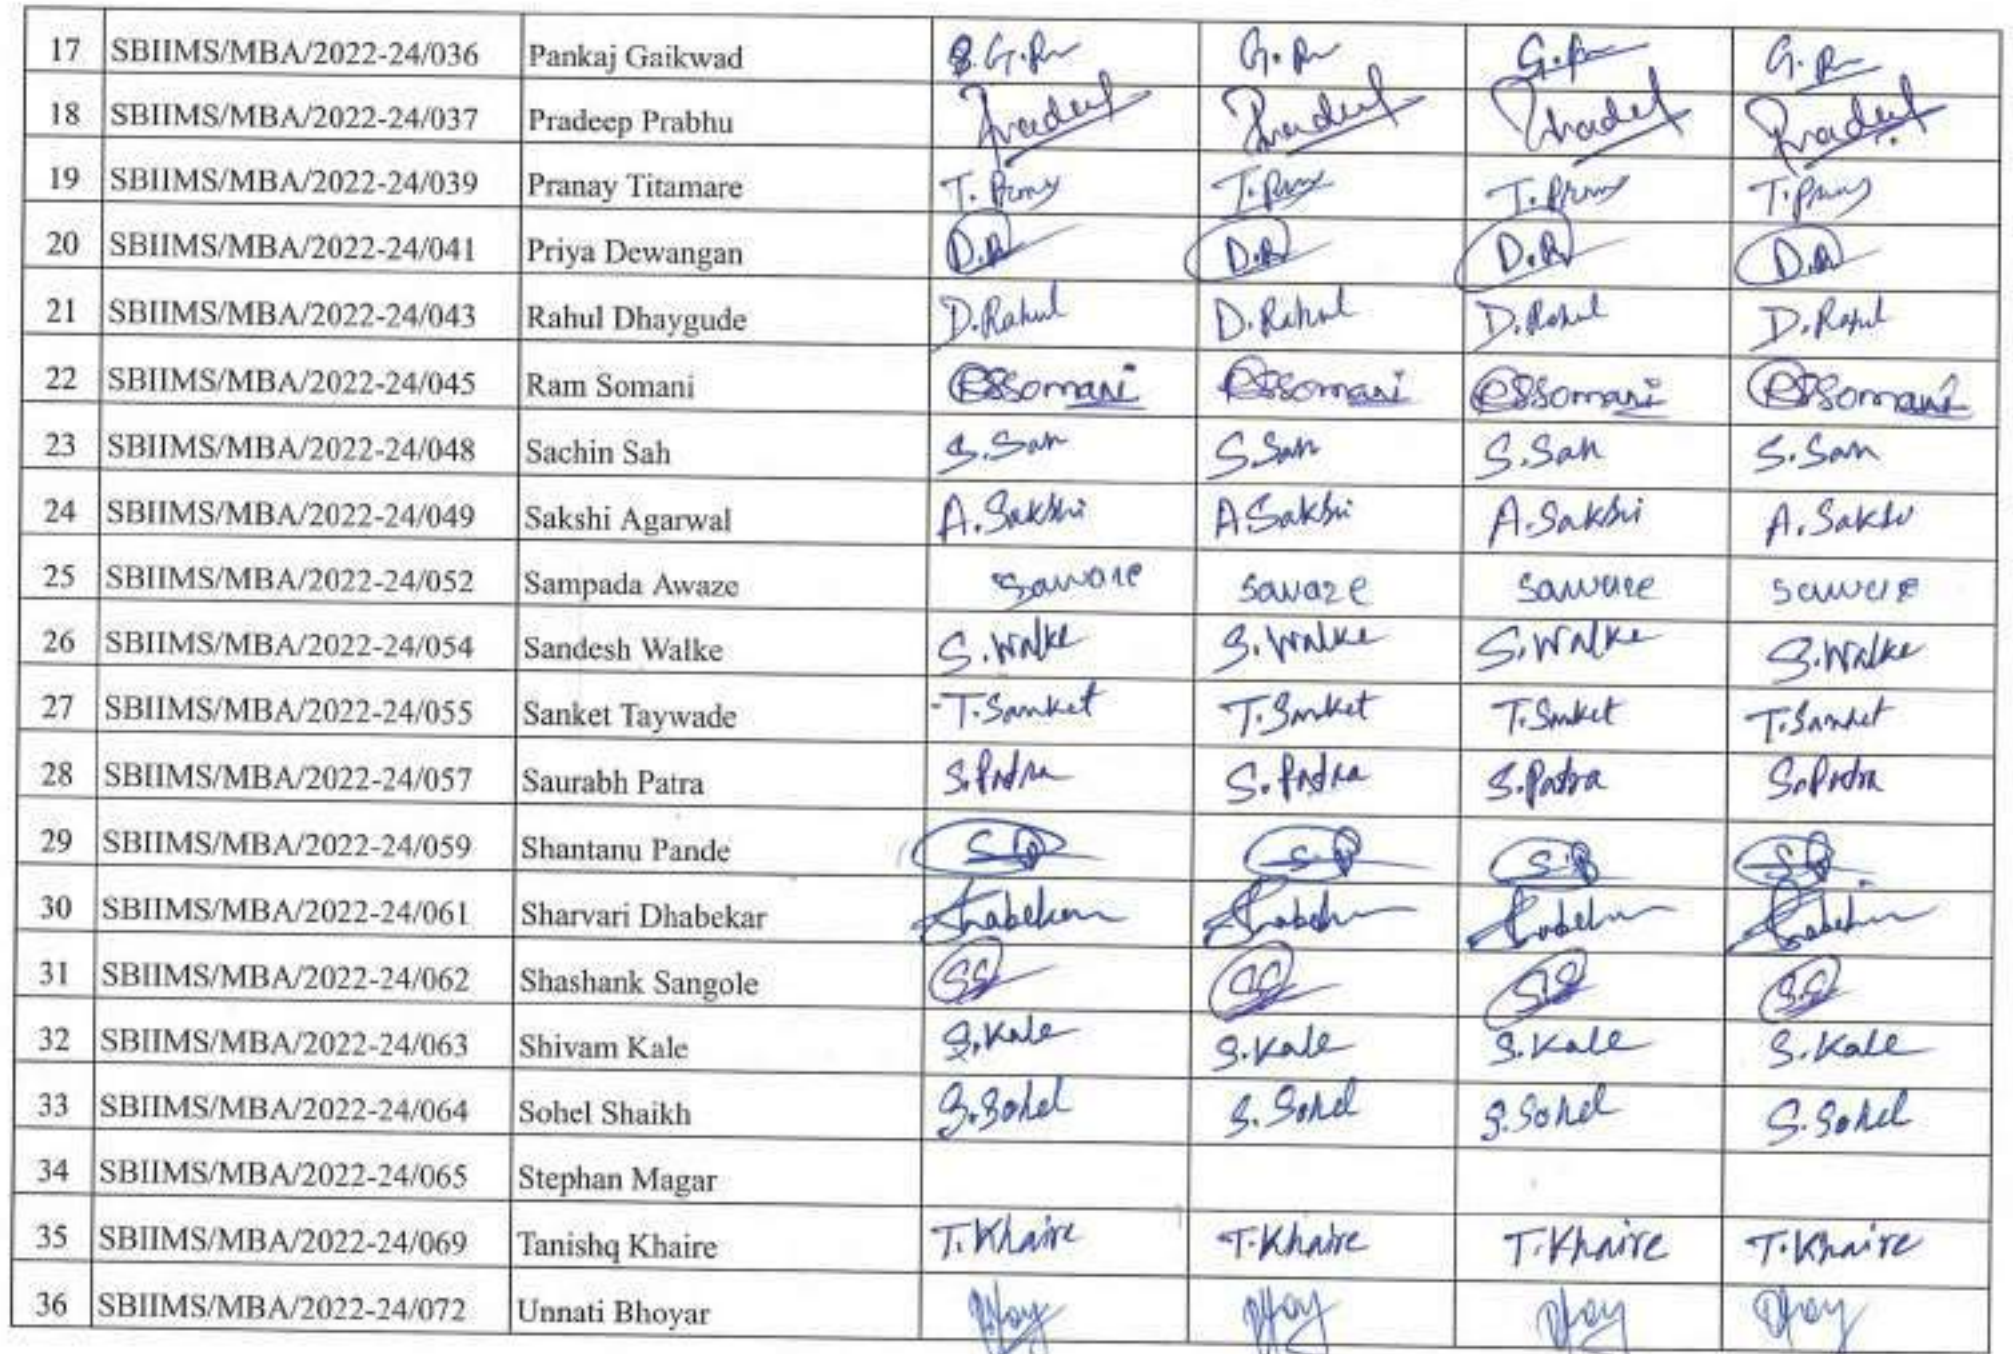 17 SBIIMS/MBA/2022-24/036 Pankaj Gaikwad
18 SBIIMS/MBA/2022-24/037 Pradeep Prabhu Pradeep Pradeep Pradeep Pradeep
19 SBIIMS/MBA/2022-24/039 Pranay Titamare
20 SBIIMS/MBA/2022-24/041 Priya Dewangan
21 SBIIMS/MBA/2022-24/043 Rahul Dhaygude D.Rahul D.Rahul D.Rahul D.Rahul
22 SBIIMS/MBA/2022-24/045 Ram Somani RSSomani RSSomani RSSomani RSSomani
23 SBIIMS/MBA/2022-24/048 Sachin Sah S.Sah S.Sah S.Sah S.Sah
24 SBIIMS/MBA/2022-24/049 Sakshi Agarwal A.Sakshi A.Sakshi A.Sakshi A.Sakshi
25 SBIIMS/MBA/2022-24/052 Sampada Awaze Sawaze Sawaze Sawaze Sawaze
26 SBIIMS/MBA/2022-24/054 Sandesh Walke S.Walke S.Walke S.Walke S.Walke
27 SBIIMS/MBA/2022-24/055 Sanket Taywade T.Sanket T.Sanket T.Sanket T.Sanket
28 SBIIMS/MBA/2022-24/057 Saurabh Patra S.Patra S.Patra S.Patra S.Patra
29 SBIIMS/MBA/2022-24/059 Shantanu Pande
30 SBIIMS/MBA/2022-24/061 Sharvari Dhabekar
31 SBIIMS/MBA/2022-24/062 Shashank Sangole SS SS S.S S.S
32 SBIIMS/MBA/2022-24/063 Shivam Kale S.Kale S.Kale S.Kale S.Kale
33 SBIIMS/MBA/2022-24/064 Sohel Shaikh S.Sohel S.Sohel S.Sohel S.Sohel
34 SBIIMS/MBA/2022-24/065 Stephan Magar
35 SBIIMS/MBA/2022-24/069 Tanishq Khaire T.Khaire T.Khaire T.Khaire T.Khaire
36 SBIIMS/MBA/2022-24/072 Unnati Bhoyar